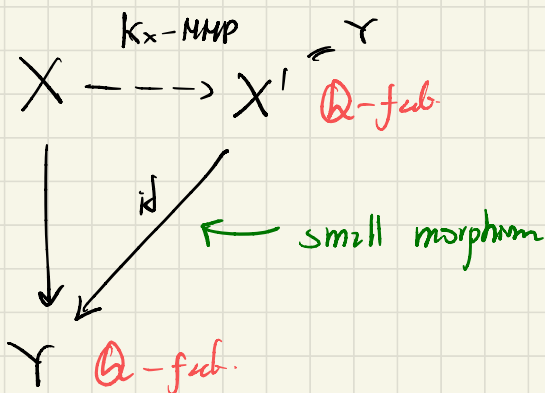 Kx-MMP
Y
X X' Q-fact.
id
small morphism
Y Q-fact.